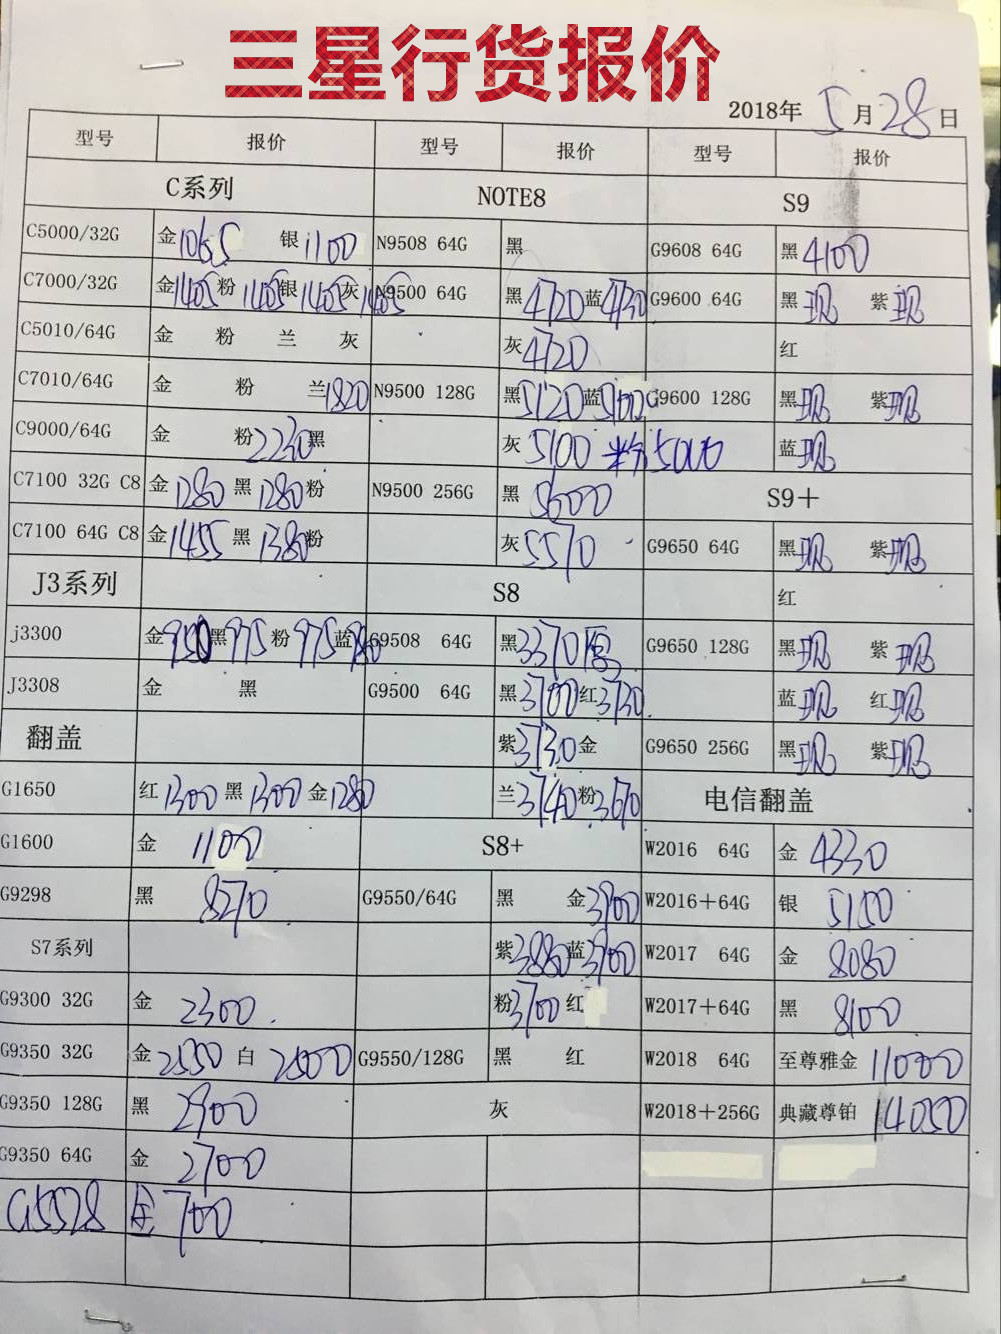 三星行货报价
2018年 5月28日
型号 报价 型号 报价 型号 报价
C系列 NOTE8 S9
C5000/32G 金1065 银1100 N9508 64G 黑 G9608 64G 黑4100
C7000/32G 金1405 粉1405 银1405 灰1405 N9500 64G 黑4720 蓝4730 G9600 64G 黑现 紫现
C5010/64G 金 粉 兰 灰 灰4720 红
C7010/64G 金 粉 兰1820 N9500 128G 黑5120 蓝5100 G9600 128G 黑现 紫现
C9000/64G 金 粉2230 黑 灰5100 粉5000 蓝现
C7100 32G C8 金1280 黑1280 粉 N9500 256G 黑5600 S9+
C7100 64G C8 金1455 黑1380 粉 灰5570 G9650 64G 黑现 紫现
J3系列 S8 红
j3300 金950 黑975 粉975 蓝 G9508 64G 黑3370 G9650 128G 黑现 紫现
J3308 金 黑 G9500 64G 黑3700 红3730 蓝现 红现
翻盖 紫3730 金 G9650 256G 黑现 紫现
G1650 红1300 黑1300 金1280 兰3740 粉3670 电信翻盖
G1600 金 1100 S8+ W2016 64G 金 4330
G9298 黑 8270 G9550/64G 黑 金3900 W2016+64G 银 5150
S7系列 紫3880 蓝3900 W2017 64G 金 8080
G9300 32G 金 2300. 粉3700 红 W2017+64G 黑 8100
G9350 32G 金2550 白 2500 G9550/128G 黑 红 W2018 64G 至尊雅金 11000
G9350 128G 黑 2900 灰 W2018+256G 典藏尊铂 14050
G9350 64G 金 2700
G5528 金 700